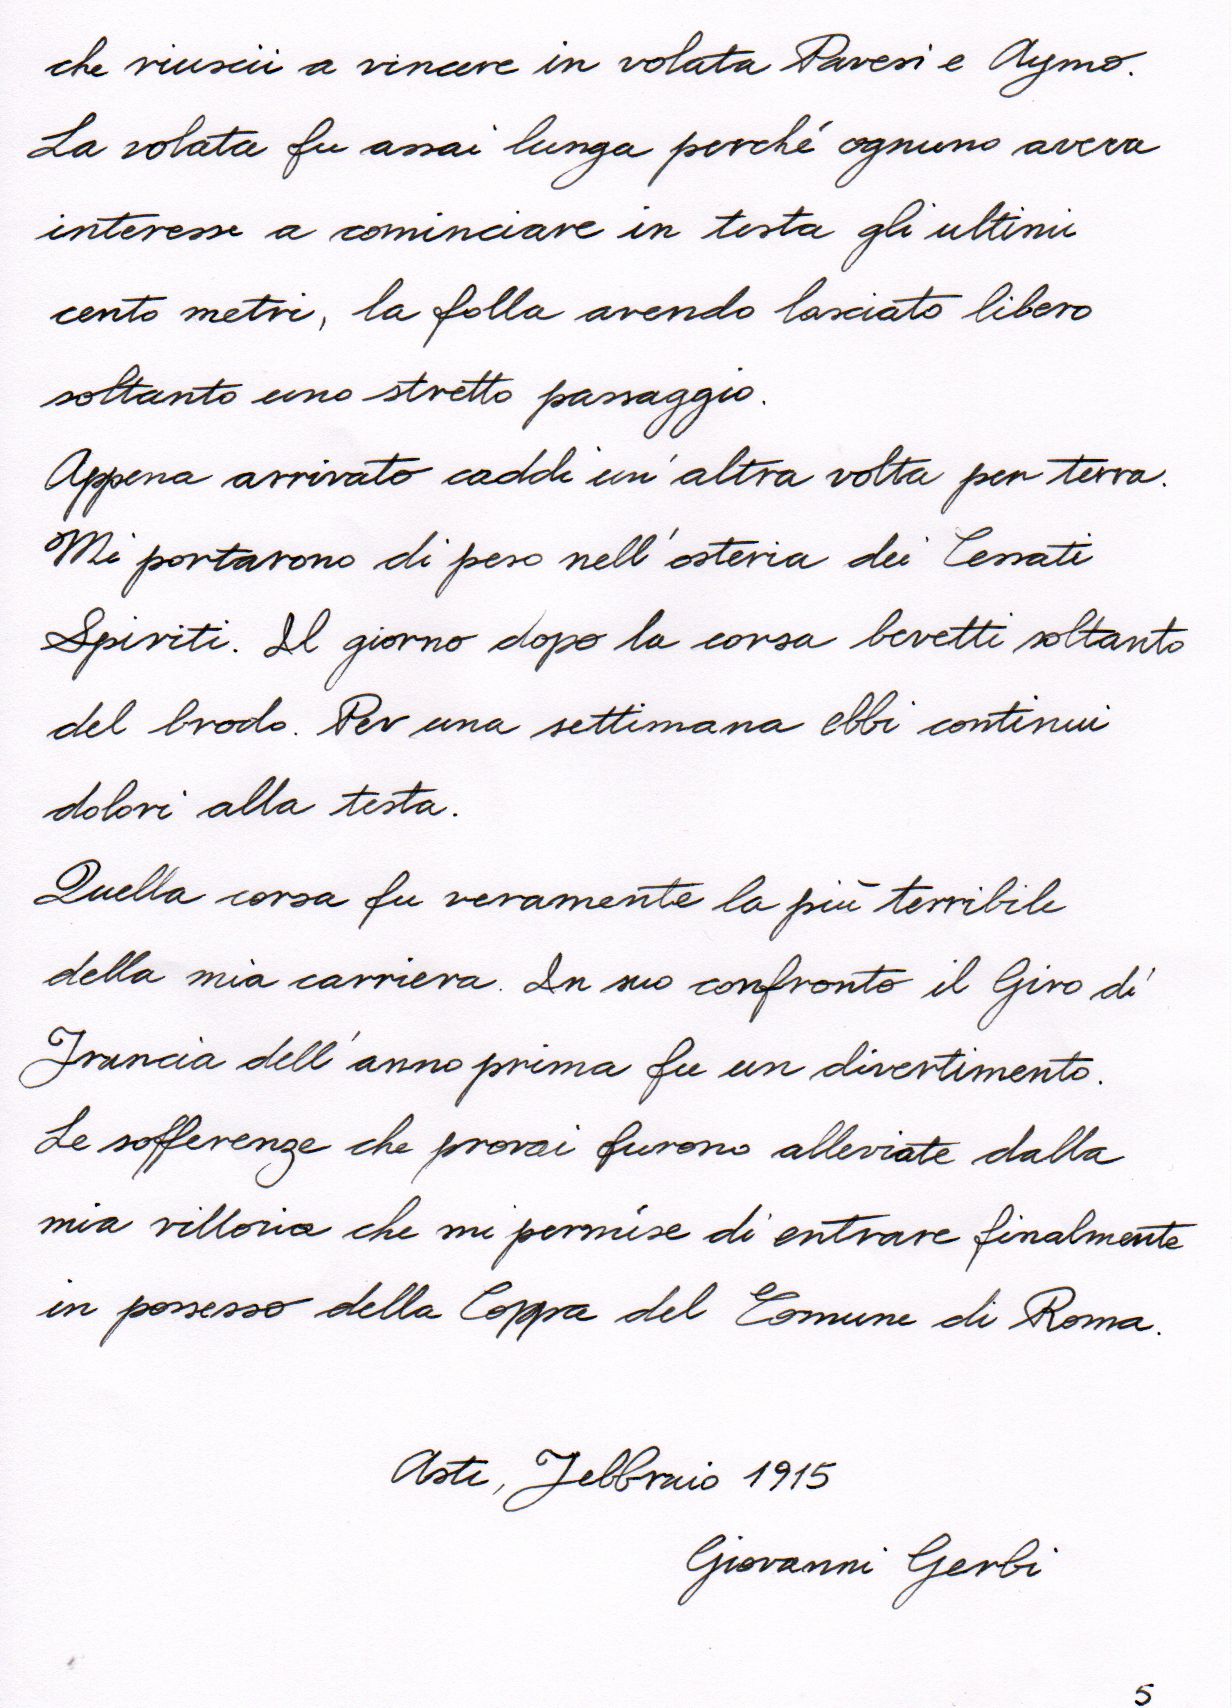 che riuscii a vincere in volata Pavesi e Aymo.
La volata fu assai lunga perché ognuno aveva
interesse a cominciare in testa gli ultimi
cento metri, la folla avendo lasciato libero
soltanto uno stretto passaggio.
Appena arrivato caddi un'altra volta per terra.
Mi portarono di peso nell'osteria dei Cessati
Spiriti. Il giorno dopo la corsa bevetti soltanto
del brodo. Per una settimana ebbi continui
dolori alla testa.
Quella corsa fu veramente la più terribile
della mia carriera. In suo confronto il Giro di
Francia dell'anno prima fu un divertimento.
Le sofferenze che provai furono alleviate dalla
mia vittoria che mi permise di entrare finalmente
in possesso della Coppa del Comune di Roma.
Asti, Febbraio 1915
Giovanni Gerbi
5